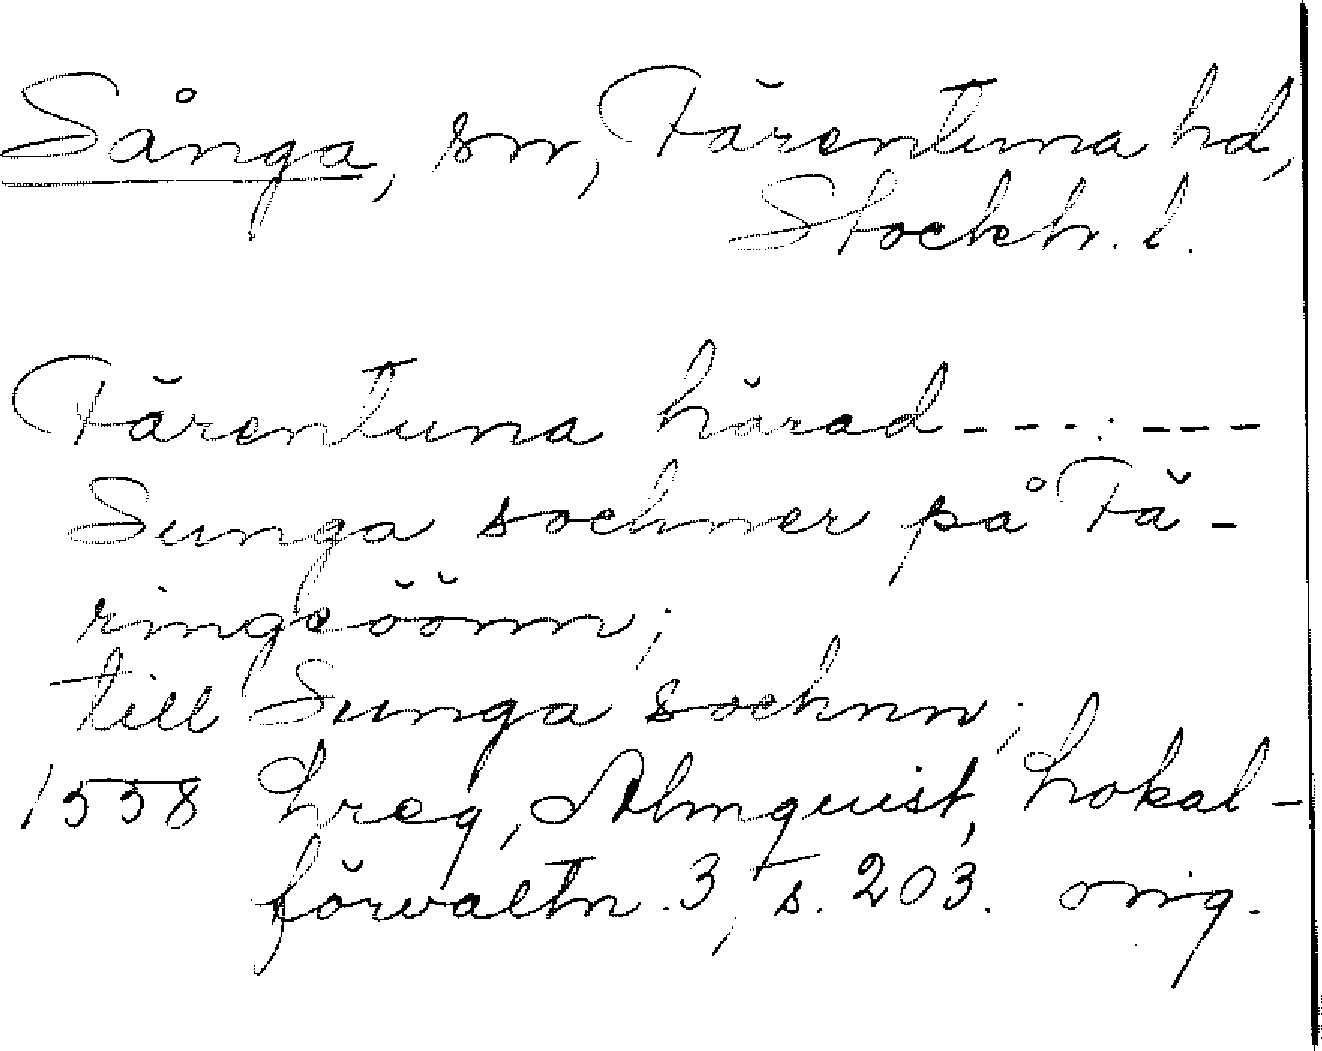 Sånga, sn, Färentuna hd,
Stockh. l.
Färentuna härad - - - - - -
Sunga sochner på Fä-
ringeöönn;
till Sunga sochnn;
1558 Lreg, Almquist, Lokal-
förvaltn. 3, s. 203. orig.